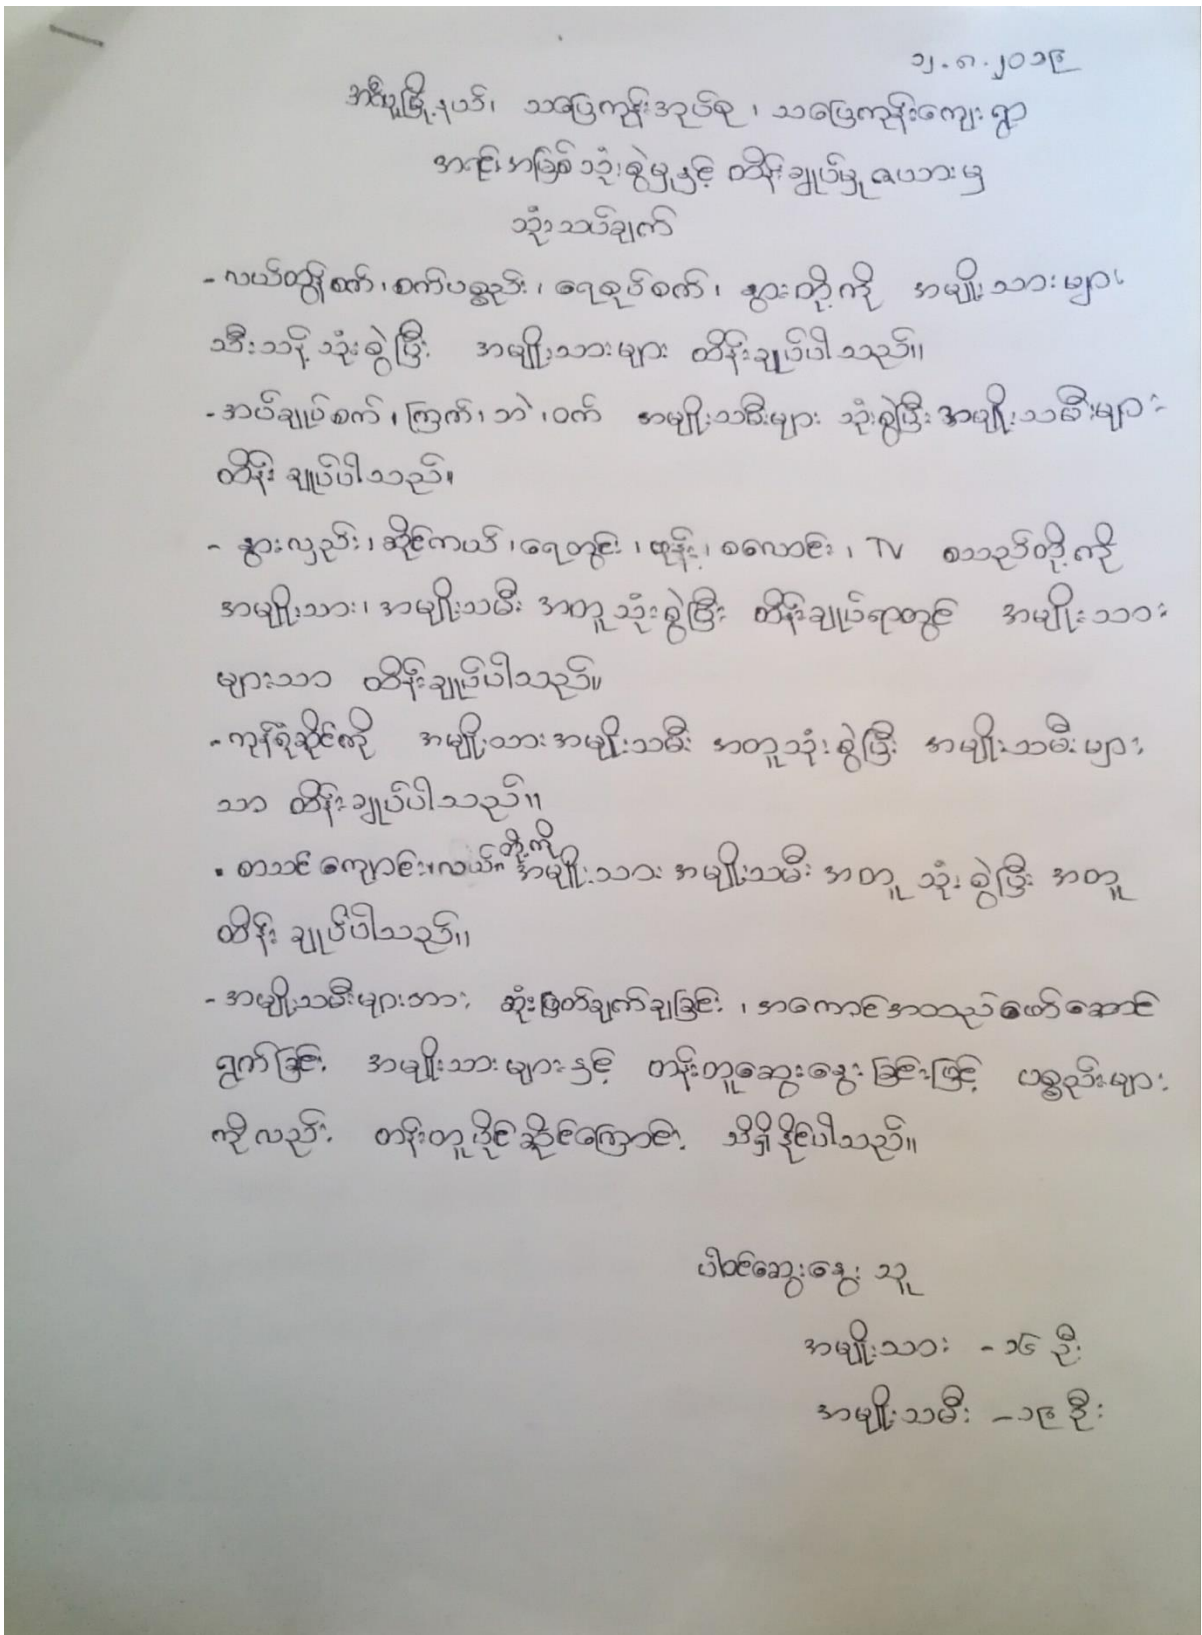 ၁၂.၈.၂၀၁၉
အင်္ဂပူမြို့နယ်၊ သပြေကုန်းအုပ်စု၊ သပြေကုန်းကျေးရွာ
အရင်းအမြစ်သုံးစွဲမှုနှင့် ထိန်းချုပ်မှု ဇယားမှ
သုံးသပ်ချက်
- လယ်ထွန်စက်၊ စက်ပစ္စည်း၊ ရေစုပ်စက်၊ နွားတို့ကို အမျိုးသားများ
သီးသန့်သုံးစွဲပြီး အမျိုးသားများ ထိန်းချုပ်ပါသည်။
- အပ်ချုပ်စက်၊ ကြက်၊ ဘဲ၊ ဝက် အမျိုးသမီးများ သုံးစွဲပြီး အမျိုးသမီးများ
ထိန်းချုပ်ပါသည်။
- နွားလှည်း၊ ဆိုင်ကယ်၊ ရေတွင်း၊ ဖုန်း၊ စလောင်း၊ TV စသည်တို့ကို
အမျိုးသား၊ အမျိုးသမီး အတူသုံးစွဲပြီး ထိန်းချုပ်ရာတွင် အမျိုးသား
များသာ ထိန်းချုပ်ပါသည်။
- ကုန်စုံဆိုင်ကို အမျိုးသားအမျိုးသမီး အတူသုံးစွဲပြီး အမျိုးသမီးများ
သာ ထိန်းချုပ်ပါသည်။
- စာသင်ကျောင်း၊ လယ် တို့ကို အမျိုးသား အမျိုးသမီး အတူ သုံးစွဲပြီး အတူ
ထိန်းချုပ်ပါသည်။
- အမျိုးသမီးများအား ဆုံးဖြတ်ချက်ချခြင်း၊ အကောင်အထည်ဖော်ဆောင်
ရွက်ခြင်း အမျိုးသားများနှင့် တန်းတူဆွေးနွေးခြင်းဖြင့် ပစ္စည်းများ
ကိုလည်း တန်းတူပိုင်ဆိုင်ကြောင်း သိရှိနိုင်ပါသည်။
ပါဝင်ဆွေးနွေးသူ
အမျိုးသား - ၁၆ ဦး
အမျိုးသမီး - ၁၉ ဦး